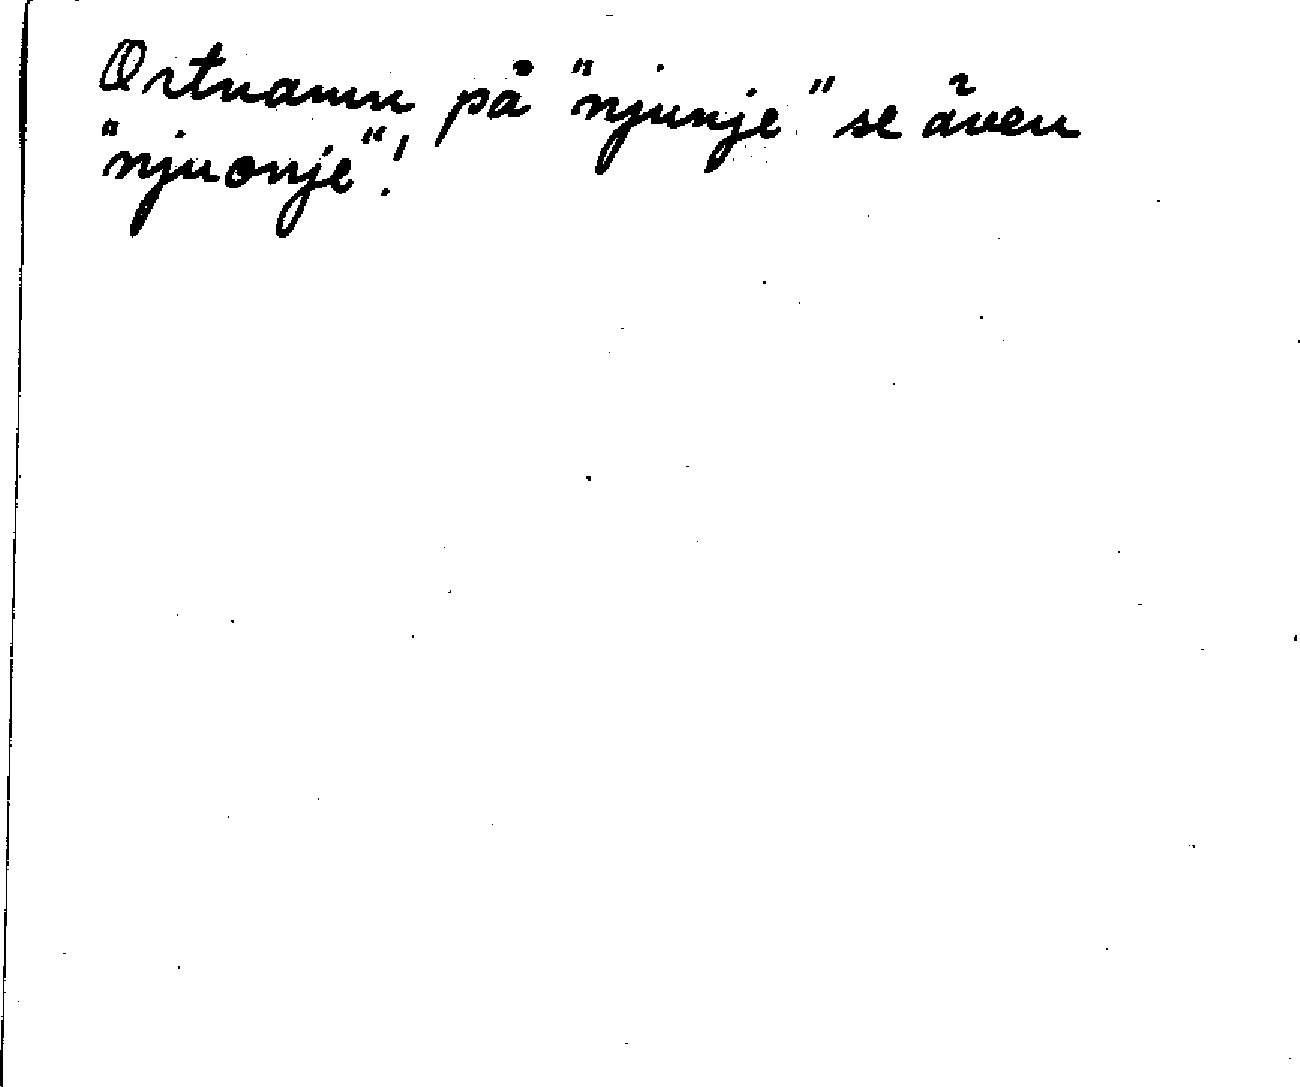 Ortnamn på "njunje" se även
"njuonje"!